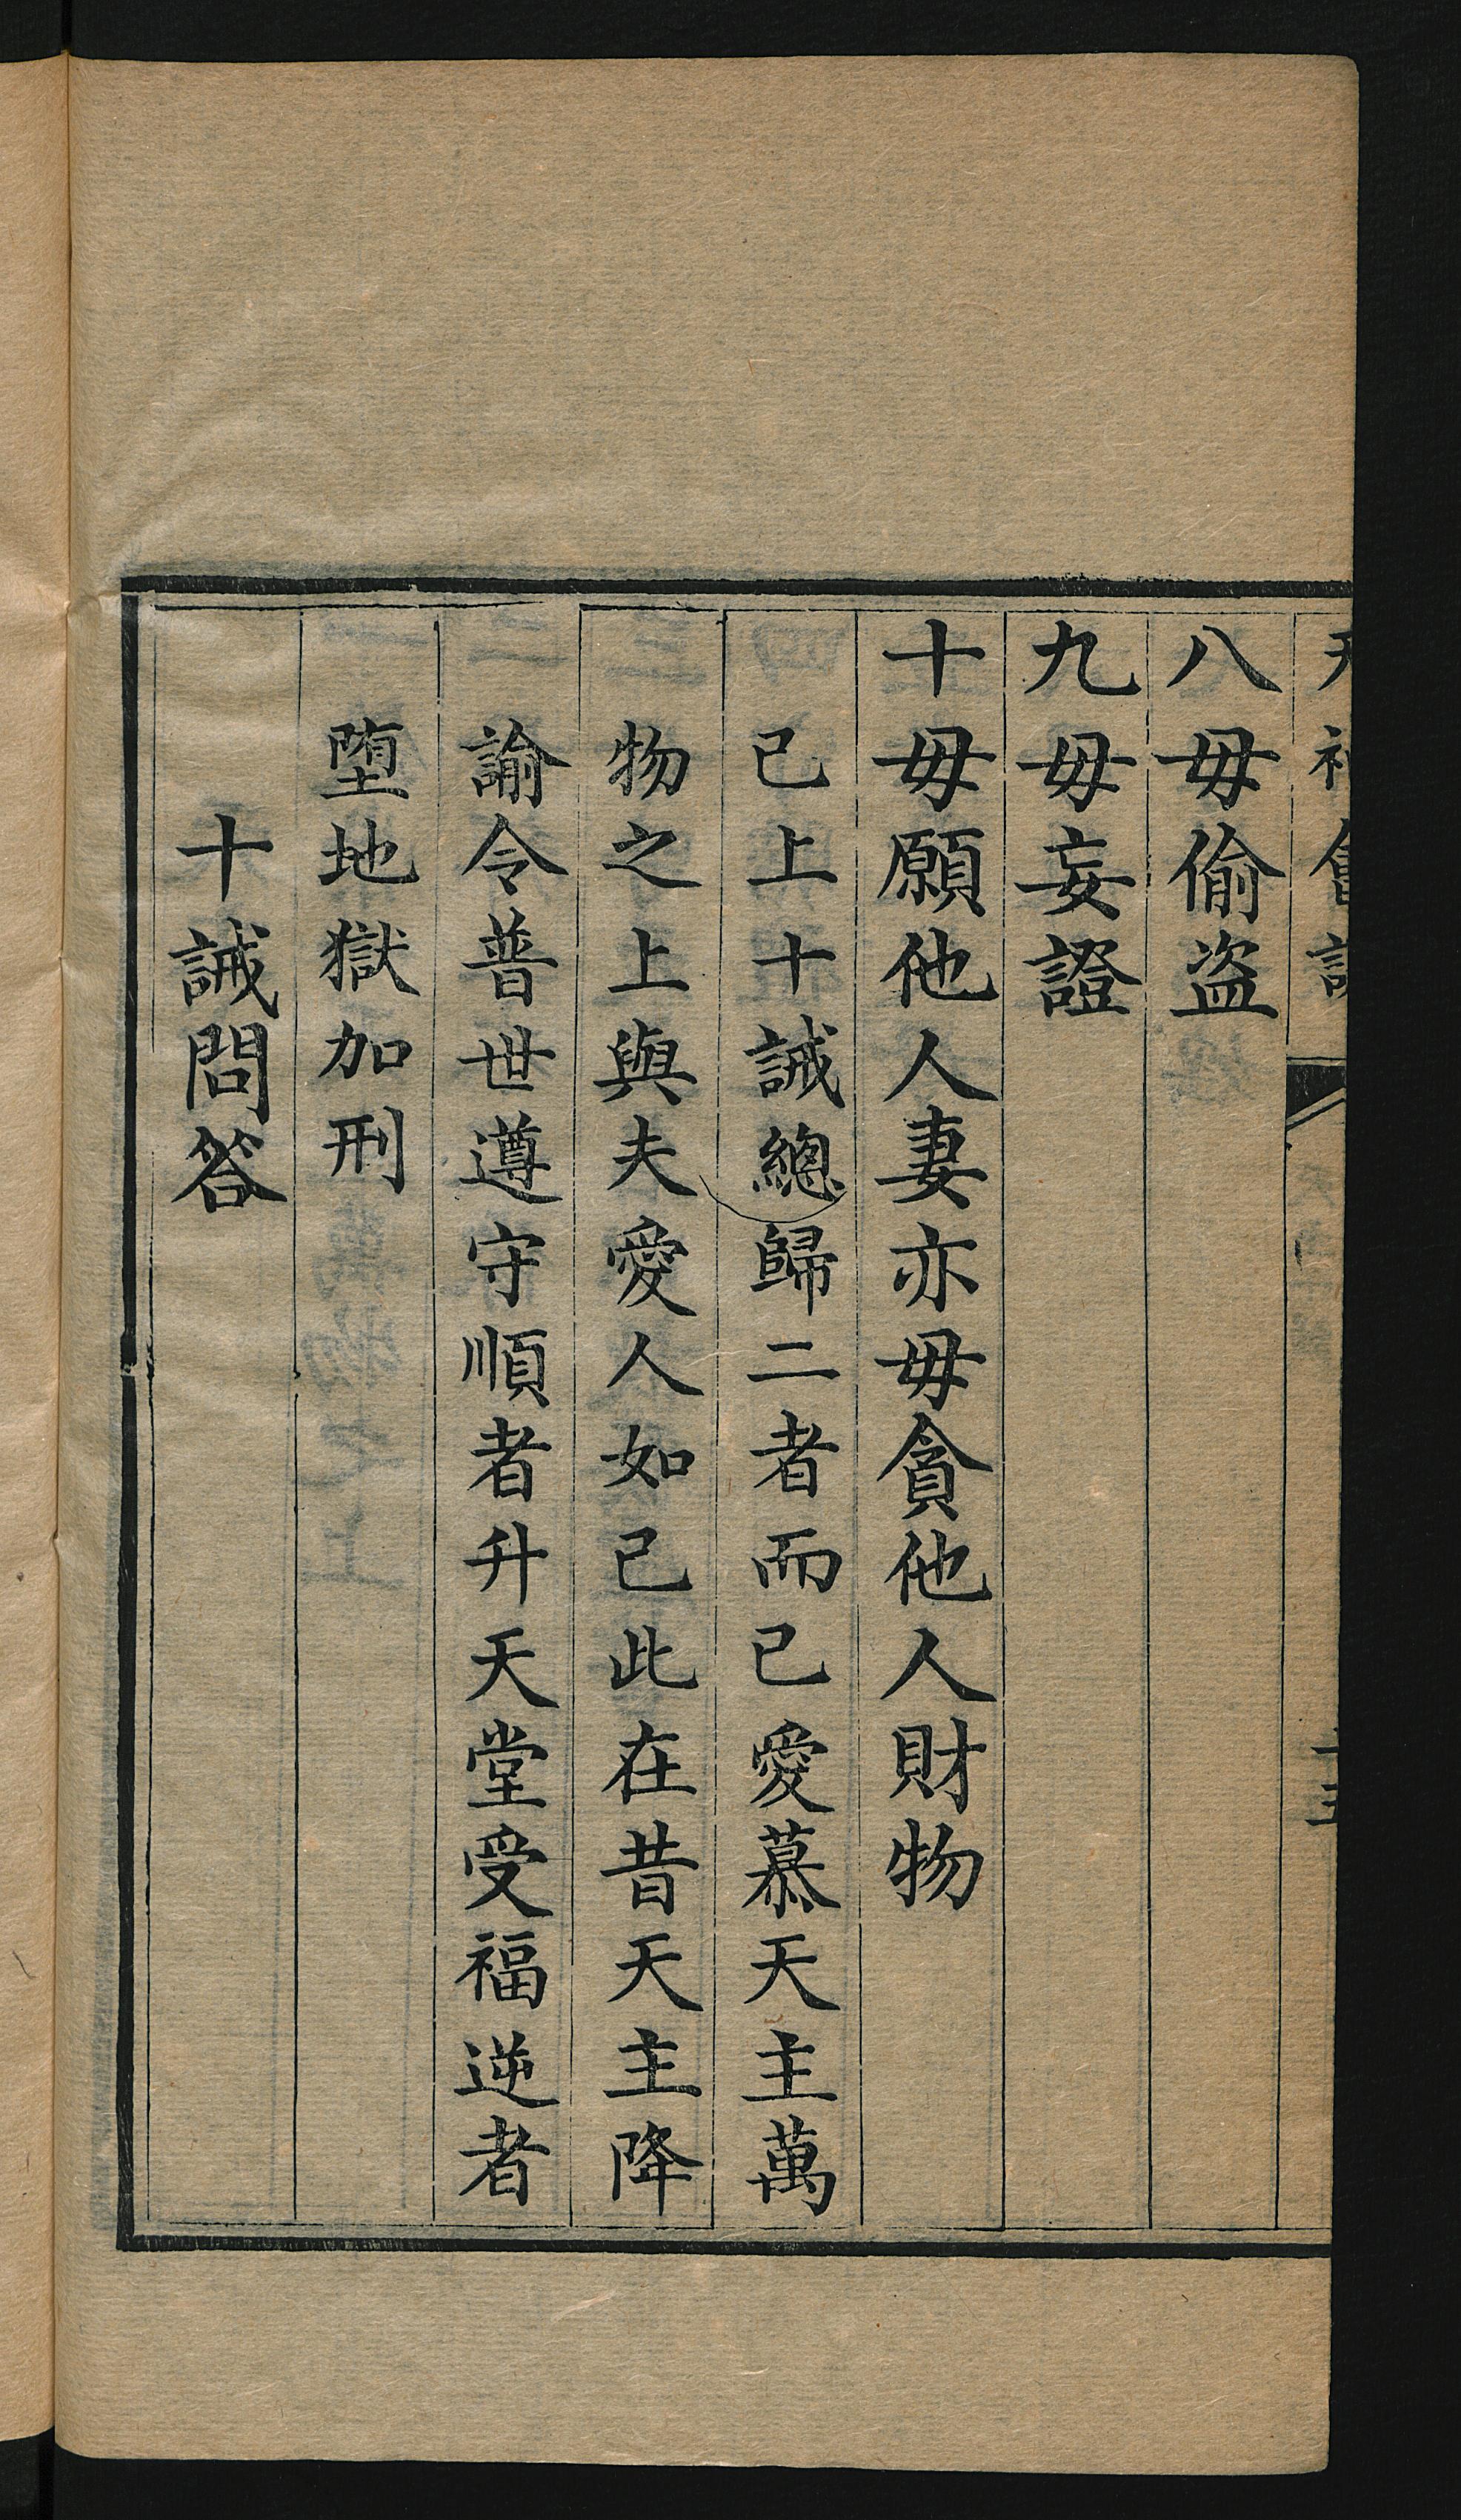 八毋偷盗
九毋妄證
十毋願他人妻亦毋貪他人財物
已上十誡總歸二者而已愛慕天主萬
物之上與夫愛人如己此在昔天主降
諭令普世遵守順者升天堂受福逆者
堕地獄加刑
十誡問答